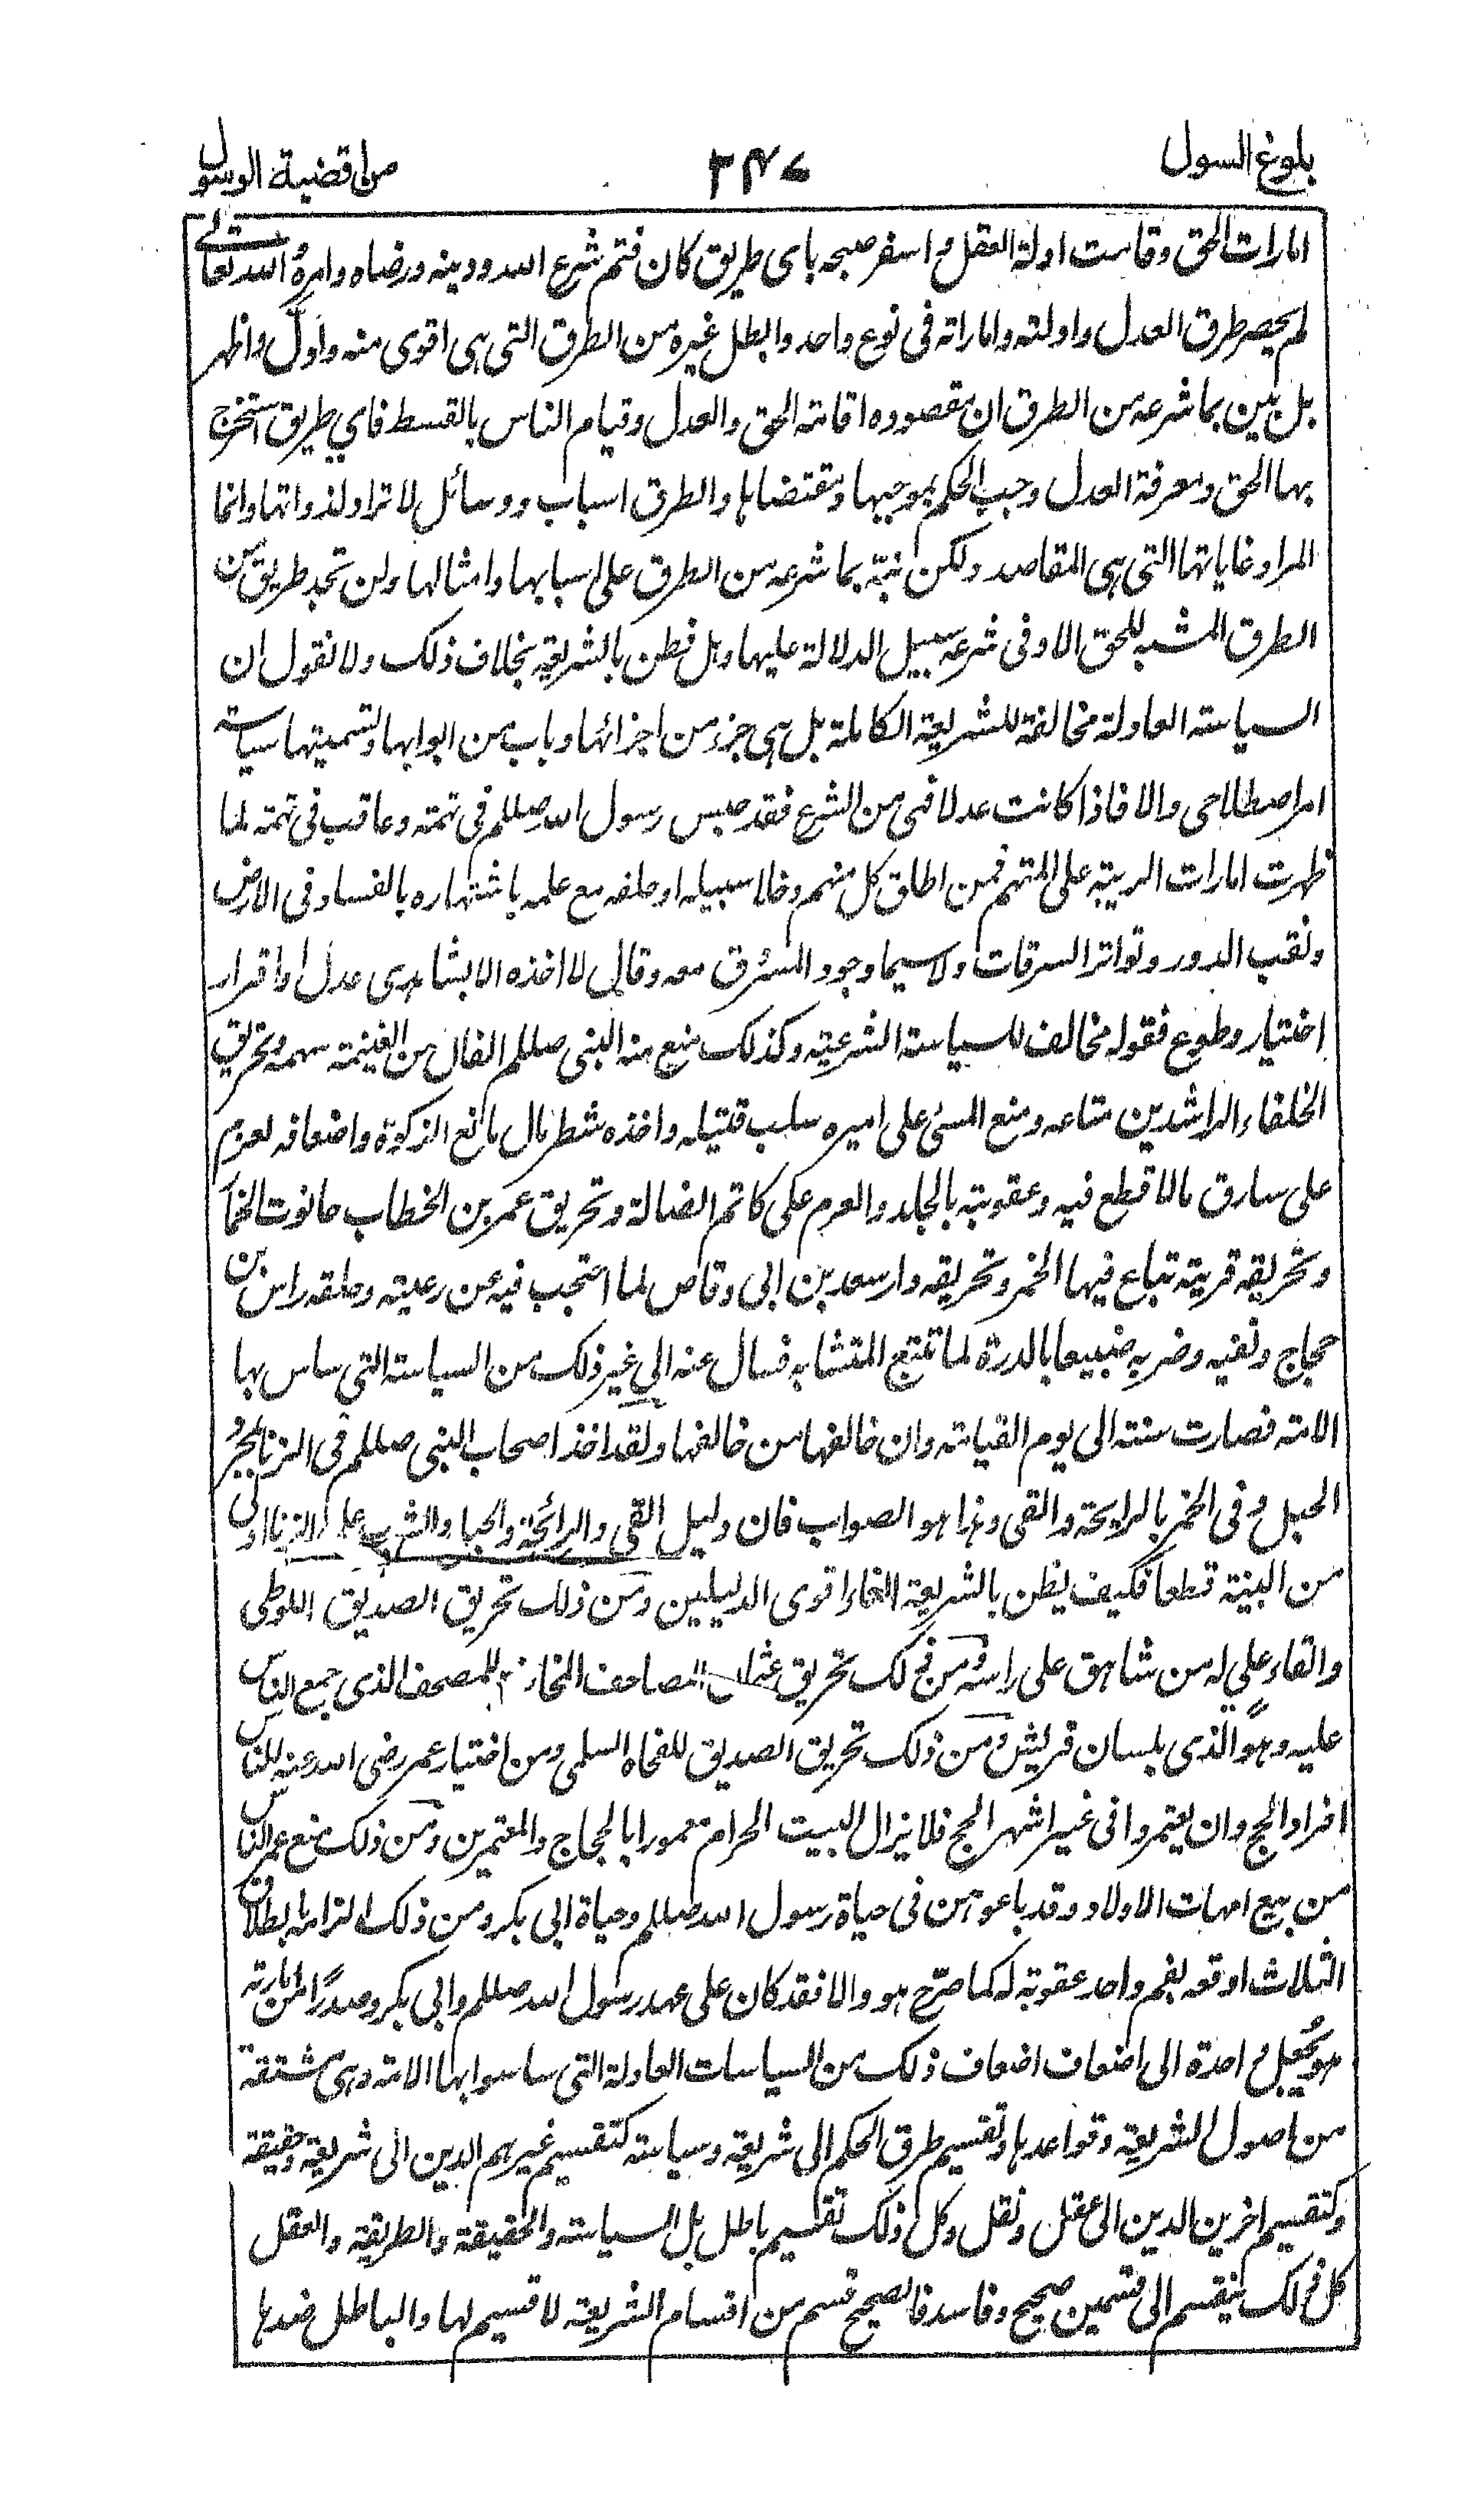 بلوغ السول
۳۴۷
من اقضية الرسول
امارات الحق وقامت ادلة العقل و اسفر صبحه باى طريق كان فثم شرع الله ودينه ورضاه وامره والله تعالى
لم يحصر طرق العدل وادلته واماراته فى نوع واحد وابطل غيره من الطرق التى هى اقوى منه وادل واظهر
بل بين بما شرعه من الطرق ان مقصوده اقامة الحق والعدل وقيام الناس بالقسط فاي طريق استخرج
بها الحق ومعرفة العدل وجب الحكم بموجبها ومقتضاها والطرق اسباب ووسائل لا تراد لذواتها وانما
المراد غاياتها التى هى المقاصد ولكن نبّه بما شرعه من الطرق على اسبابها وامثالها ولن تجد طريق من
الطرق المثبه للحق الا وفى شرعه سبيل الدلالة عليها وهل فطن بالشريعة بخلاف ذلك ولا نقول ان
السياسة العادلة مخالفة للشريعة الكاملة بل هى جزء من اجزائها وباب من ابوابها وتسميتها سياسة
امر اصطلاحى والا فاذا كانت عدلا فهى من الشرع فقد حبس رسول الله صللم فى تهمته وعاقب فى تهمته لما
ظهرت امارات الريبة على المتهم فمن اطلق كل منهم وخلا سبيله او حلفه مع علمه باشتهاره بالفساد فى الارض
ونقب الدور وتواتر السرقات ولا سيما وجود المسرق معه وقال لا اخذه الا بشاهدى عدل او اقرار
اختيار وطوع فقوله مخالف للسياسة الشرعية وكذلك منع منه النبى صللم الغال من الغنيمة سهمه وتحريق
الخلفاء الراشدين متاعه ومنع المسئ على اميره سلب قتيله واخذه شطر مال مانع الزكوة واضعافه لعزم
على سارق مالا قطع فيه وعقوبته بالجلد والعزم على كاتم الضالة وتحريق عمر بن الخطاب حانوت الخمار
وتحريقه قرية تباع فيها الخمر وتحريقه دار سعد بن ابى وقاص لما احتجب فيه عن رعيته وحلقه راس بن
حجاج ونفيه وضربه ضبيعا بالدرة لما تتبع المتشابه فسال عنه الي غير ذلك من السياسة التى ساس بها
الامة فصارت سنته الى يوم القيامة وان خالفها من خالفها ولقد اخذ اصحاب النبى صللم فى الزنا بمجرد
الحبل وفى الخمر بالرايحة والقى وهذا هو الصواب فان دليل القى والرائحة والحبا والشرب على الزنا اولى
من البينة قطعا فكيف يظن بالشريعة الغاء اقوى الدليلين ومن ذلك تحريق الصديق اللوطى
والقاء علي له من شاهق على راسه ومن ذلك تحريق عثمان المصاحف المخالفة للمصحف الذى جمع الناس
عليه وهو الذى بلسان قريش ومن ذلك تحريق الصديق للفجاة السلمى ومن اختيار عمر رضى الله عنه للناس
افراد الحج وان يعتمروا فى غير اشهر الحج فلا يزال البيت الحرام معمورا بالحجاج والمعتمرين ومن ذلك منع عمر الناس
من بيع امهات الاولاد وقد باعوهن فى حياة رسول الله صللم وحياة ابى بكر ومن ذلك الزامه بالطلاق
الثلاث اوقعه بفم واحد عقوبة له كما صرّح هو والا فقد كان على عهد رسول الله صللم وابى بكر وصدرًا من امارته
هو يجعل واحدة الى اضعاف اضعاف ذلك من السياسات العادلة التى ساسوا بها الامة وهى مشتقة
من اصول الشريعة وقواعدها وتقسيم طرق الحكم الى شريعة وسياسة كتقسيم غيرهم الدين الى شريعة وحقيقة
وكتقسيم اخرين الدين الى عقل ونقل وكل ذلك تقسيم باطل بل السياسة والحقيقة والطريقة والعقل
كل ذلك ينقسم الى قسمين صحيح وفاسد فالصحيح قسم من اقسام الشريعة لا قسيم لها والباطل ضدها